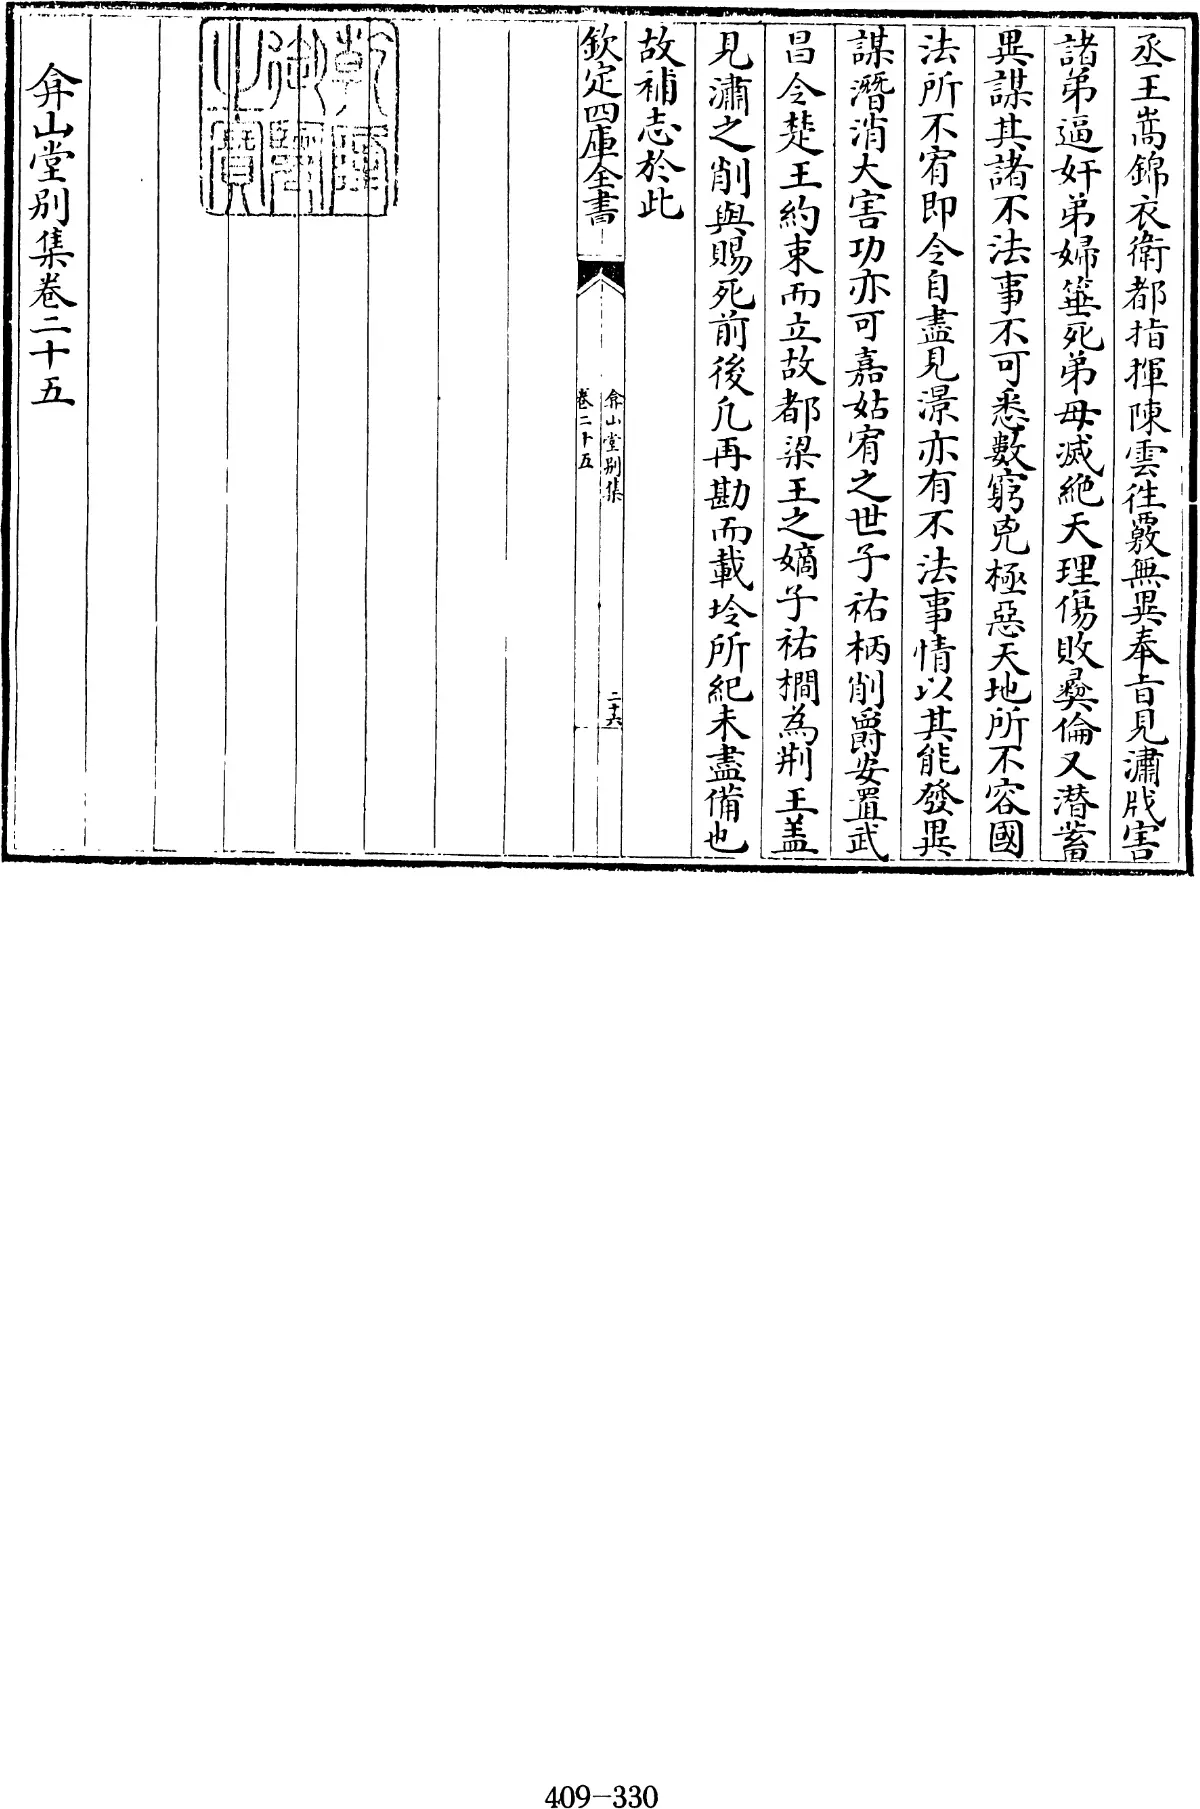 丞王嵩錦衣衛都指揮陳雲徃覈無異奉旨見潚戕害
諸弟逼奸弟婦箠死弟母滅絶天理傷敗彞倫又潜蓄
異謀其諸不法事不可悉數窮兇極惡天地所不容國
法所不宥即令自盡見澋亦有不法事情以其能發異
謀潛消大害功亦可嘉姑宥之世子祐柄削爵安置武
昌令楚王約束而立故都梁王之嫡子祐橺為荆王盖
見潚之削與賜死前後凢再勘而載坽所紀未盡備也
故補志於此
欽定四庫全書
弇山堂别集
卷二十五
二十六
乾隆御覽之寶
弇山堂别集卷二十五
409-330